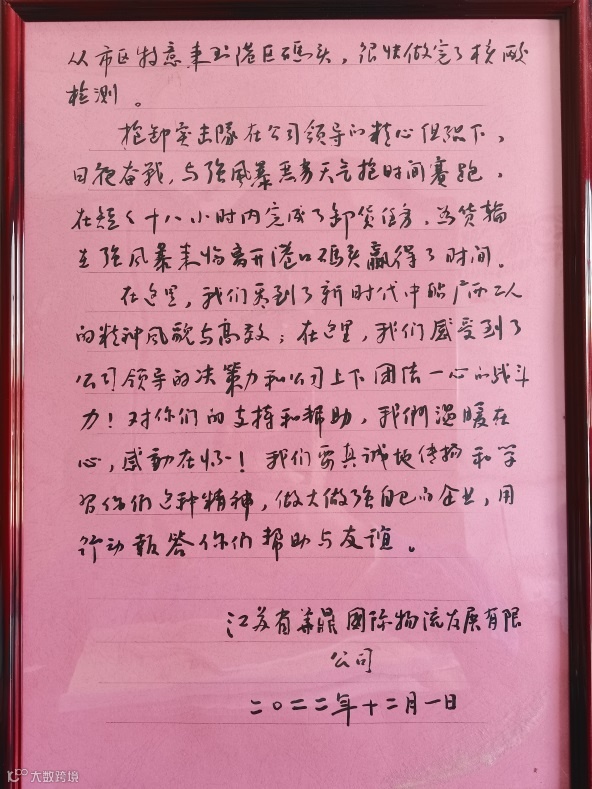 从市区特意来到港区碼头，很快做完了核酸
检测。
抢卸突击隊在公司领导的精心组织下，
日夜奋战，与强風暴恶劣天气抢时间赛跑，
在短短十八小时内完成了卸货任务，为货輪
在强風暴来临离开港口碼头赢得了时间。
在这里，我们看到了新时代中船广西工人
的精神風貌与高效；在这里，我们感受到了
公司领导的决策力和公司上下团结一心的战斗
力！对你们的支持和帮助，我們温暖在
心，感動在怀！我们要真诚地传揚和学
习你们这种精神，做大做强自己的企业，用
行动報答你们帮助与友誼。
江苏省華晟國际物流发展有限
公司
二〇二二年十二月一日
大数跨境